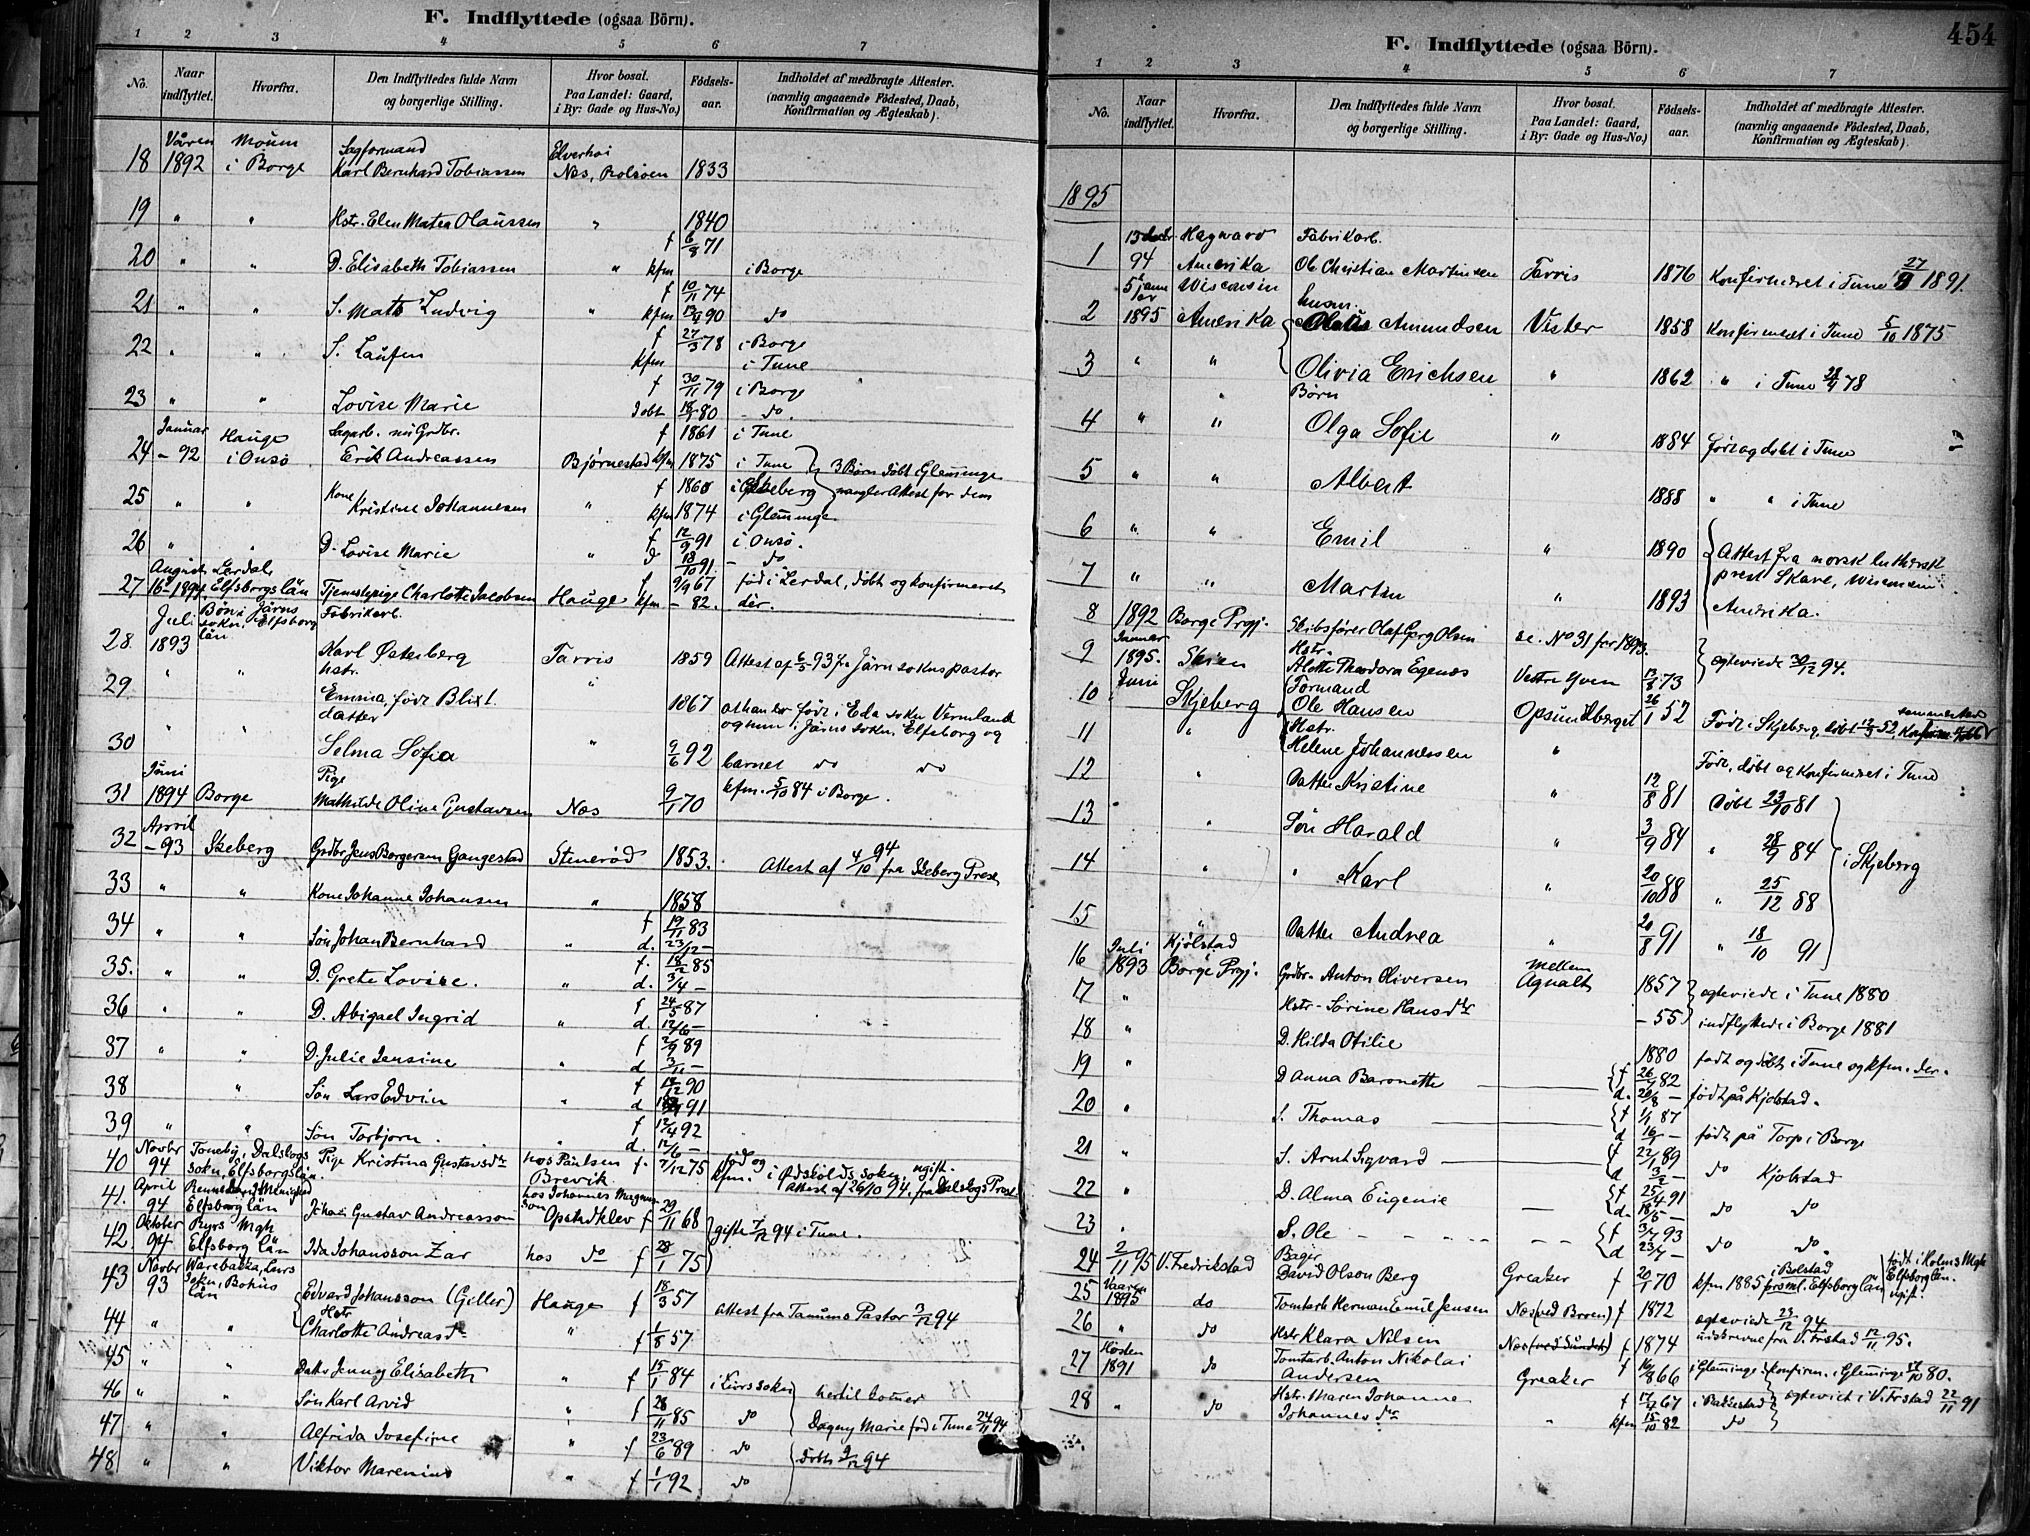 F. Indflyttede (ogsaa Börn).
1 2 3 4 5 6 7
No. Naar indflyttet. Hvorfra. Den Indflyttedes fulde Navn og borgerlige Stilling. Hvor bosat. Paa Landet: Gaard, i By: Gade og Hus-No.) Födsels-aar. Indholdet af medbragte Attester. (navnlig angaaende Födested, Daab, Konfirmation og Ægteskab).
Våren Moum Sagformand Elverhoi
18 1892 i Borge Karl Bernhard Tobiassen Næs, Rolsøen 1833
19 " " Hstr. Elen Matea Olaussen " 1840
f 6/8 71
20 " " D. Elisabeth Tobiassen " kfm i Borge
f 10/11 74
21 " " S. Mats Ludvig " kfm 90 do
f 27/3 78 i Borge
22 " " S. Laufen kfm i Tune
f 30/11 79 i Borge
23 " " Lovise Marie døbt 80 - do.
Januar Hauge Sagarb. nu Grdbr. f 1861 i Tune
24 - 92 i Onsø Erik Andreassen Bjørnestad kfm 1875 i Tune } 3 Børn døbt i Glemminge
f 1860 i Skeberg mangler Attest for dem
25 " " Kone Kristine Johannesen " kfm 1874 i Glemminge
f 12/9 91 i Onsø.
26 " " D. Lovise Marie " d 18/10 91 - do
August Lerdal,
27 16- 1894 Elfsborgs län Tjenestepige Charlotte Jacobsen Hauge f 9/9 67 kfm - 82. fød i Lerdal, døbt og konfirmeret dèr.
Juli Bön i Järns sokn, Elfsborg län Fabrikarb.
28 1893 Karl Østerberg Tarris 1859 Attest af 6/5 93 fra Järn soknspastor
29 " " hstr. Emma, født Blixt. " 1867 at han er født i Eda sokn Vermland og hun i Järns sokn, Elfsborg og
30 " " datter Selma Sofia " 9/6 92 barnet do do
Juni Pige
31 1894 Borge Mathilde Oline Gustavsen Næs 9/1 70 kfm. 5/10 84 i Borge.
April
32 - 93 Skeberg Grdbr Jens Borgersen Gangestad Stenerød 1853. Attest af 4/10 94 fra Skeberg Prest
33 " " Kone Johanne Johansen " 1858
34 " " Søn Johan Bernhard " f 19/11 83 d. 23/12 -
35. " " D. Grete Lovise. " f. 18/2 85 d. 3/4 -
36 " " D. Abigael Ingrid " f 24/5 87 d. 12/6 -
37 " " D. Julie Jensine " f 2/9 89 d 3/11 -
38 " Søn Lars Edvin " f 12 90 d 91
39 " " Søn Torbjørn. " f 17/4 92 d. 12/6 -
Novbr Toneby, Dalskogs
40 94 sokn, Elfsborgs län. Pige Kristina Gustavsdtr hos Paulsen Brevik f. 7/12 75 fød og kfm. i Ødskölds sokn, ugift. Attest af 26/10 94. fra Dalskogs Prest
41. April 94 Rennelanda Menighed Elfsborg län Johan Gustav Andreasson hos Johannes Magnusson Opstadklev f 29/11 68 } gifte 7/12 94 i Tune.
42 Oktober 94 Ryrs Mgh Elfsborg län Ida Johansson Zar hos do f 28/1 75
43 Novbr 93 Warebacka, Lurs Sokn, Bohus län Edvard Johansson (Giller) Hauge f 18/3 57 attest fra Tanums Pastor 3/12 94
44 " " Hstr Charlotte Andreasdtr " f 1/8 57
45 " " Datter Jenny Elisabeth " f 15/1 84 i Lurs sokn } hertil kommer
46 " " Søn Karl Arvid " f 28/11 85 do Dagny Marie fød i Tune 24/11 94
47 " " Alfrida Josefine " f 23/6 89 do døbt 2/12 94
48 " " Viktor Marenius " f 1/1 92 do
454
F. Indflyttede (ogsaa Börn).
1 2 3 4 5 6 7
No. Naar indflyttet. Hvorfra. Den Indflyttedes fulde Navn og borgerlige Stilling. Hvor bosat. Paa Landet: Gaard, i By: Gade og Hus-No.) Födsels-aar. Indholdet af medbragte Attester. (navnlig angaaende Födested, Daab, Konfirmation og Ægteskab).
1895
13 decbr Haywars Fabrikarb.
1 94 Amerika Ole Christian Martinsen Tarris 1876 Konfirmeret i Tune 27/9 1891.
5 januar Wisconsin husm.
2 1895 Amerika Olaus Amundsen Vister 1858 Konfirmeret i Tune 5/10 1875
3 " " Olivia Erichsen " 1862 " i Tune 28/9 78
Børn
4 " " Olga Sofie " 1884 født og døbt i Tune
5 " " Albert 1888 " " i Tune
6 " " Emil " 1890 Attest fra norsk luthersk
7 " " Martin " 1893 prest Skare, Wisconsin Amerika.
8 1892 Borge Prgj. Skibsfører Olaf Georg Olsen se. No 31 for 1893.
9 Januar 1895. Skien Hstr. Alette Theodora Egenæs Vestre Yven 13/8 73 } ægteviede 30/12 94.
10 Juni Skjeberg Formand Ole Hansen Opsund Berget 26/1 52 Født i Skjeberg, døbt 12/3 52 sammested
11 " Hstr. Helene Johannessen " Født, døbt og Konfirmeret i Tune
12 " Datter Kristine " 12/8 81 Døbt 23/10 81
13 " Søn Harald " 3/9 84 " 28/9 84 } i Skjeberg
14 " " Karl " 20/10 88 " 25/12 88
15 " Datter Andrea " 20/8 91 " 18/10 91
16 Juli 1893 Kjølstad Borge Prgj. Grdbr. Anton Oliversen mellem Agnalt 1857 } ægteviede i Tune 1880
17 " Hstr - Sørine Hansdtr - 55 indflyttede i Borge 1881
18 " D. Hilda Otilie 1880 født og døbt i Tune og kfm. der.
19 " D Anna Baronette { f 26/ 82 d. 20/8 - født på Kjølstad.
20 " S. Thomas { f 1/1 87 d 16/ - født på Torp i Borge
21 " S. Arnt Sigvard { f 22/1 89 d 3/2 - do Kjølstad
22 " D. Alma Eugenie { f 25/4 91 d. 18/5 - do do
23 " S. Ole { f 3/4 93 d 23/4 - do do
24 2/11 95 V. Fredrikstad Bager David Olson Berg Greaker f 20/1 70 kfm 1885 i Bolstad forsml. Elfsborg län født i Holms Mgh Elfsborg län. ugift.
25 Vaaren 1895 do Tomtarb Herman Emil Jensen Næs (ved Broen) f 1872 ægteviede 23/12 94
26 " do Hstr Klara Nilsen Næs (ved Sundet) f 1874 udskrevne fra V. Frstad 12/11 95.
27 Høsten 1891 do Tomtarb. Anton Nikolai Andersen Greaker f 16/8 66 i Glemminge konfirm. i Glemminge 80.
28 " do Hstr. Maren Johanne Johannesdtr " f 17/2 67 i Rakkestad } ægteviet i V. Frstad 22/11 91
kfm 15/10 82 do